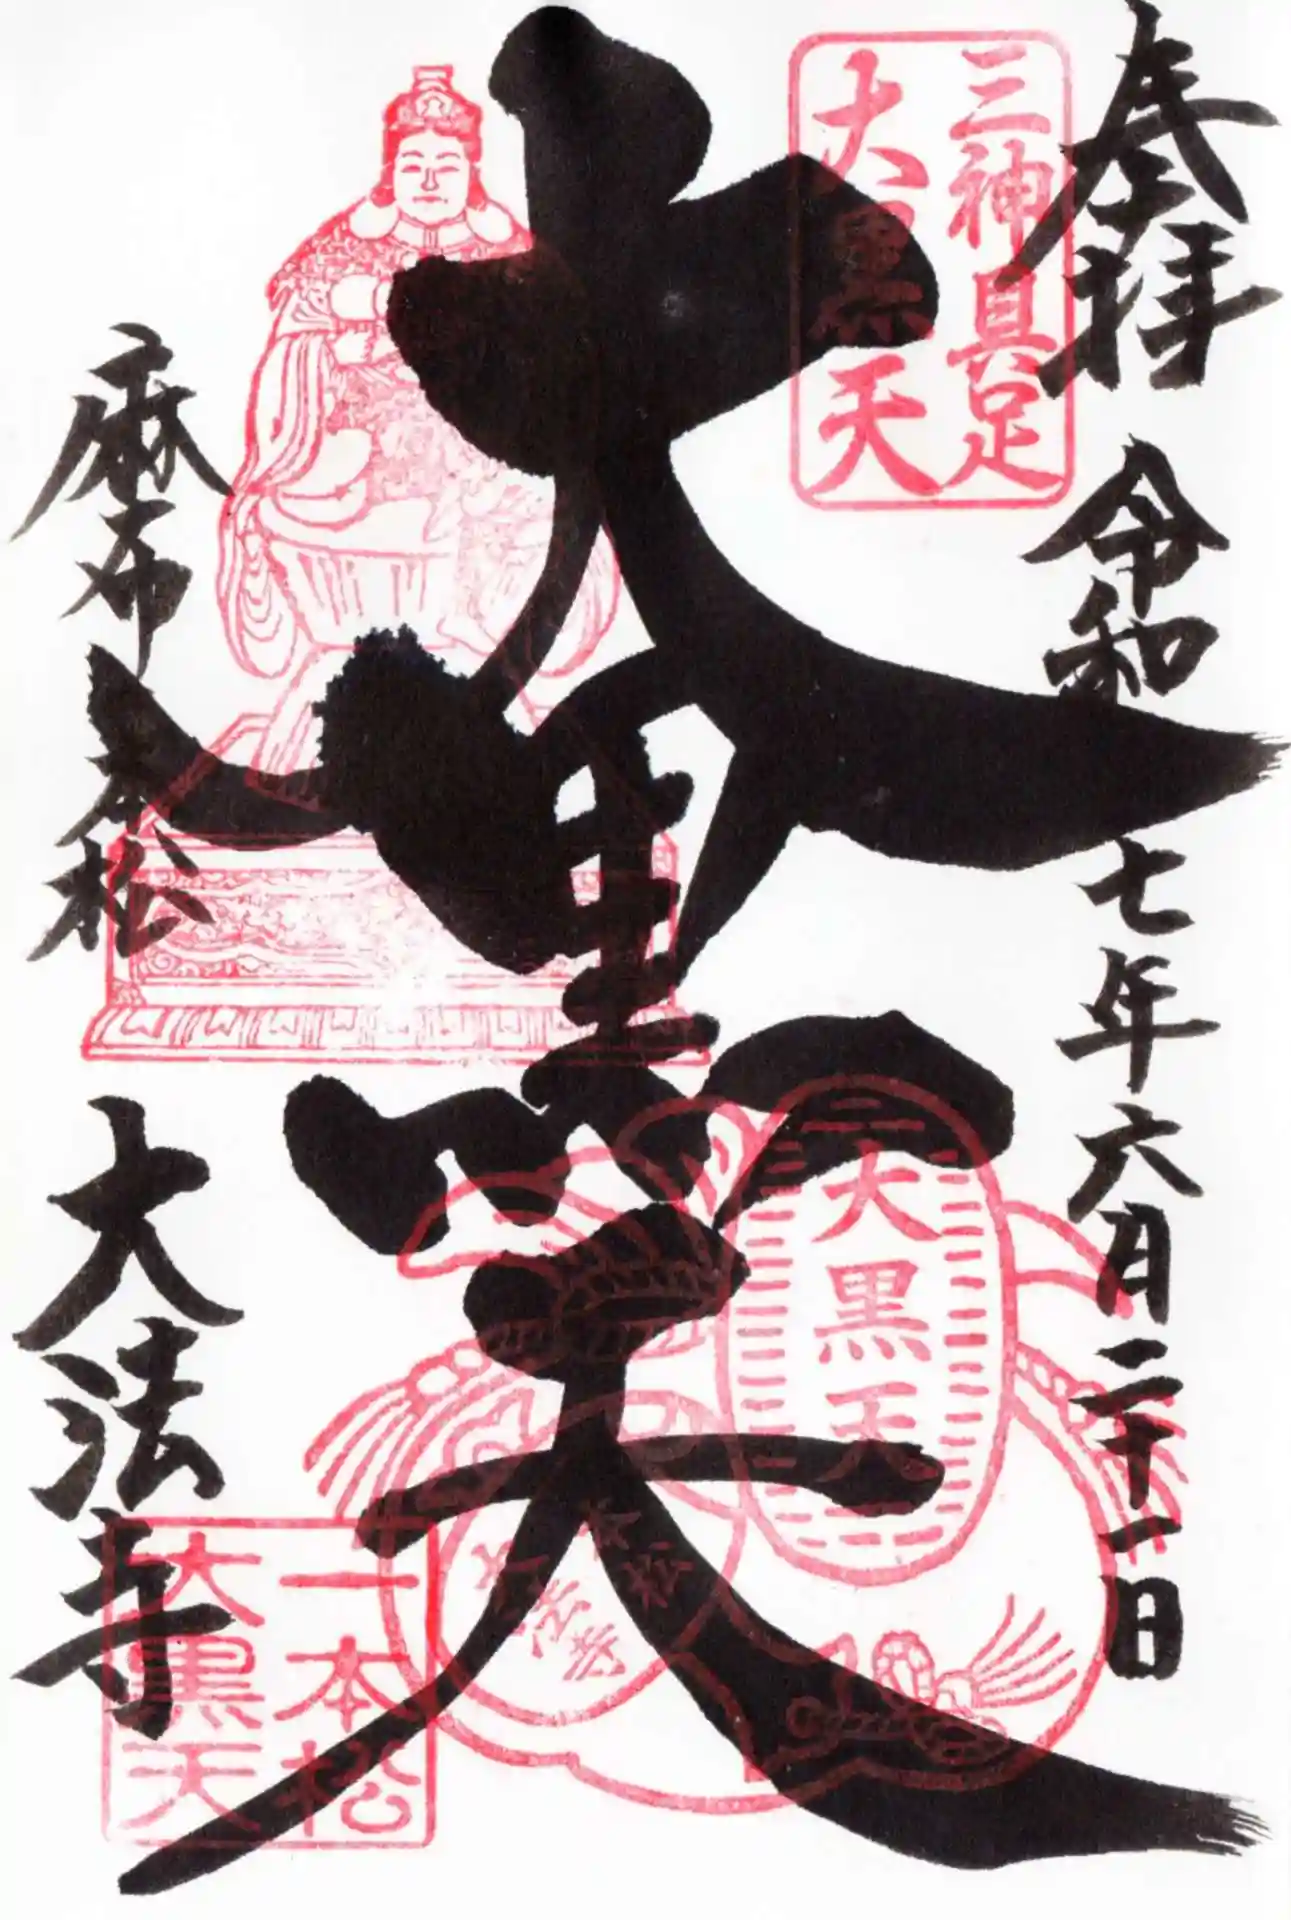 奉拝 令和七年六月二十一日
三神具足
大黒天
大黒天
大黒天
麻布一本松
大法寺
一本松
大黒天